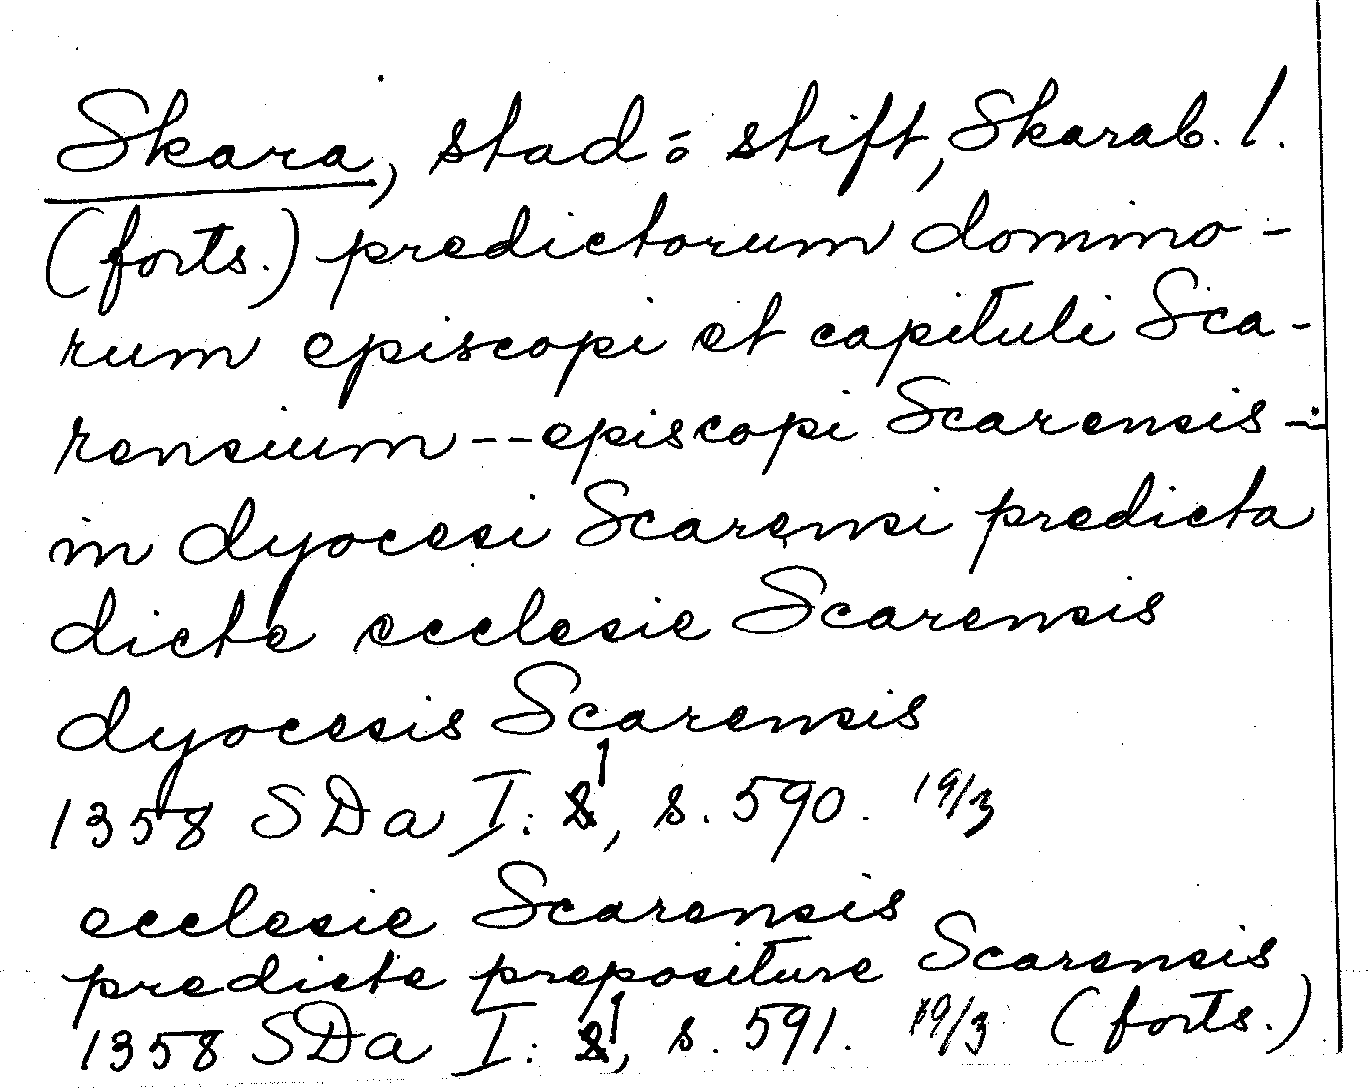 Skara, stad o. stift, Skarab. l.
(forts.) predictorum domino-
rum episcopi et capituli Sca-
rensium -- episcopi Scarensis -:
in dyocesi Scarensi predicta
dicte ecclesie Scarensis
dyocesis Scarensis
1358 SDa I: 1, s. 590. 19/3
ecclesie Scarensis
predicte prepositure Scarensis
1358 SDa I: 1, s. 591. 19/3 (forts.)